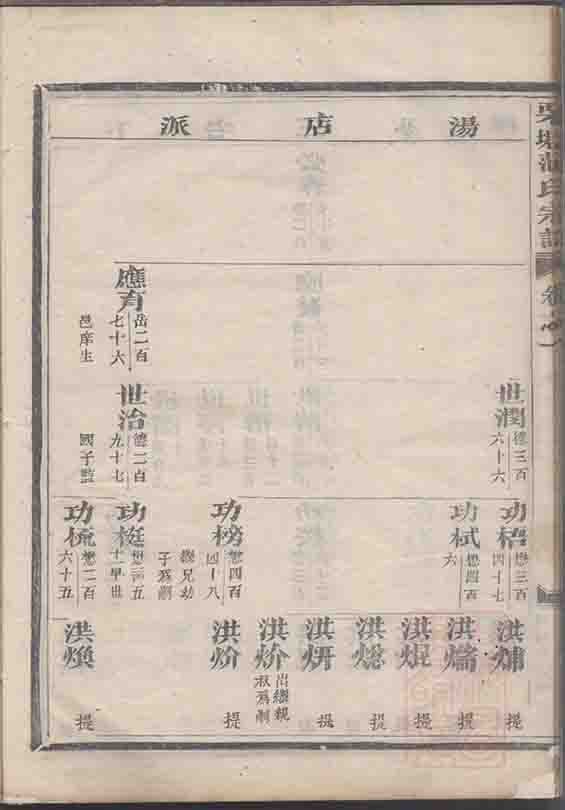 氏宗譜
湯店派
世潤
德三百
六十六
功梧
懋三百
四十七
洪烳
提
功栻
懋四百
六
提
洪焜
提
洪熜
提
洪炘
提
洪炌
出繼親
叔爲嗣
功榜
懋四百
四十八
繼兄幼
子爲嗣
洪炌
提
應育
岳二百
七十六
邑庠生
世治
德二百
九十七
國子監
功梃
十一早世
功梳
懋二百
六十五
洪煥
提